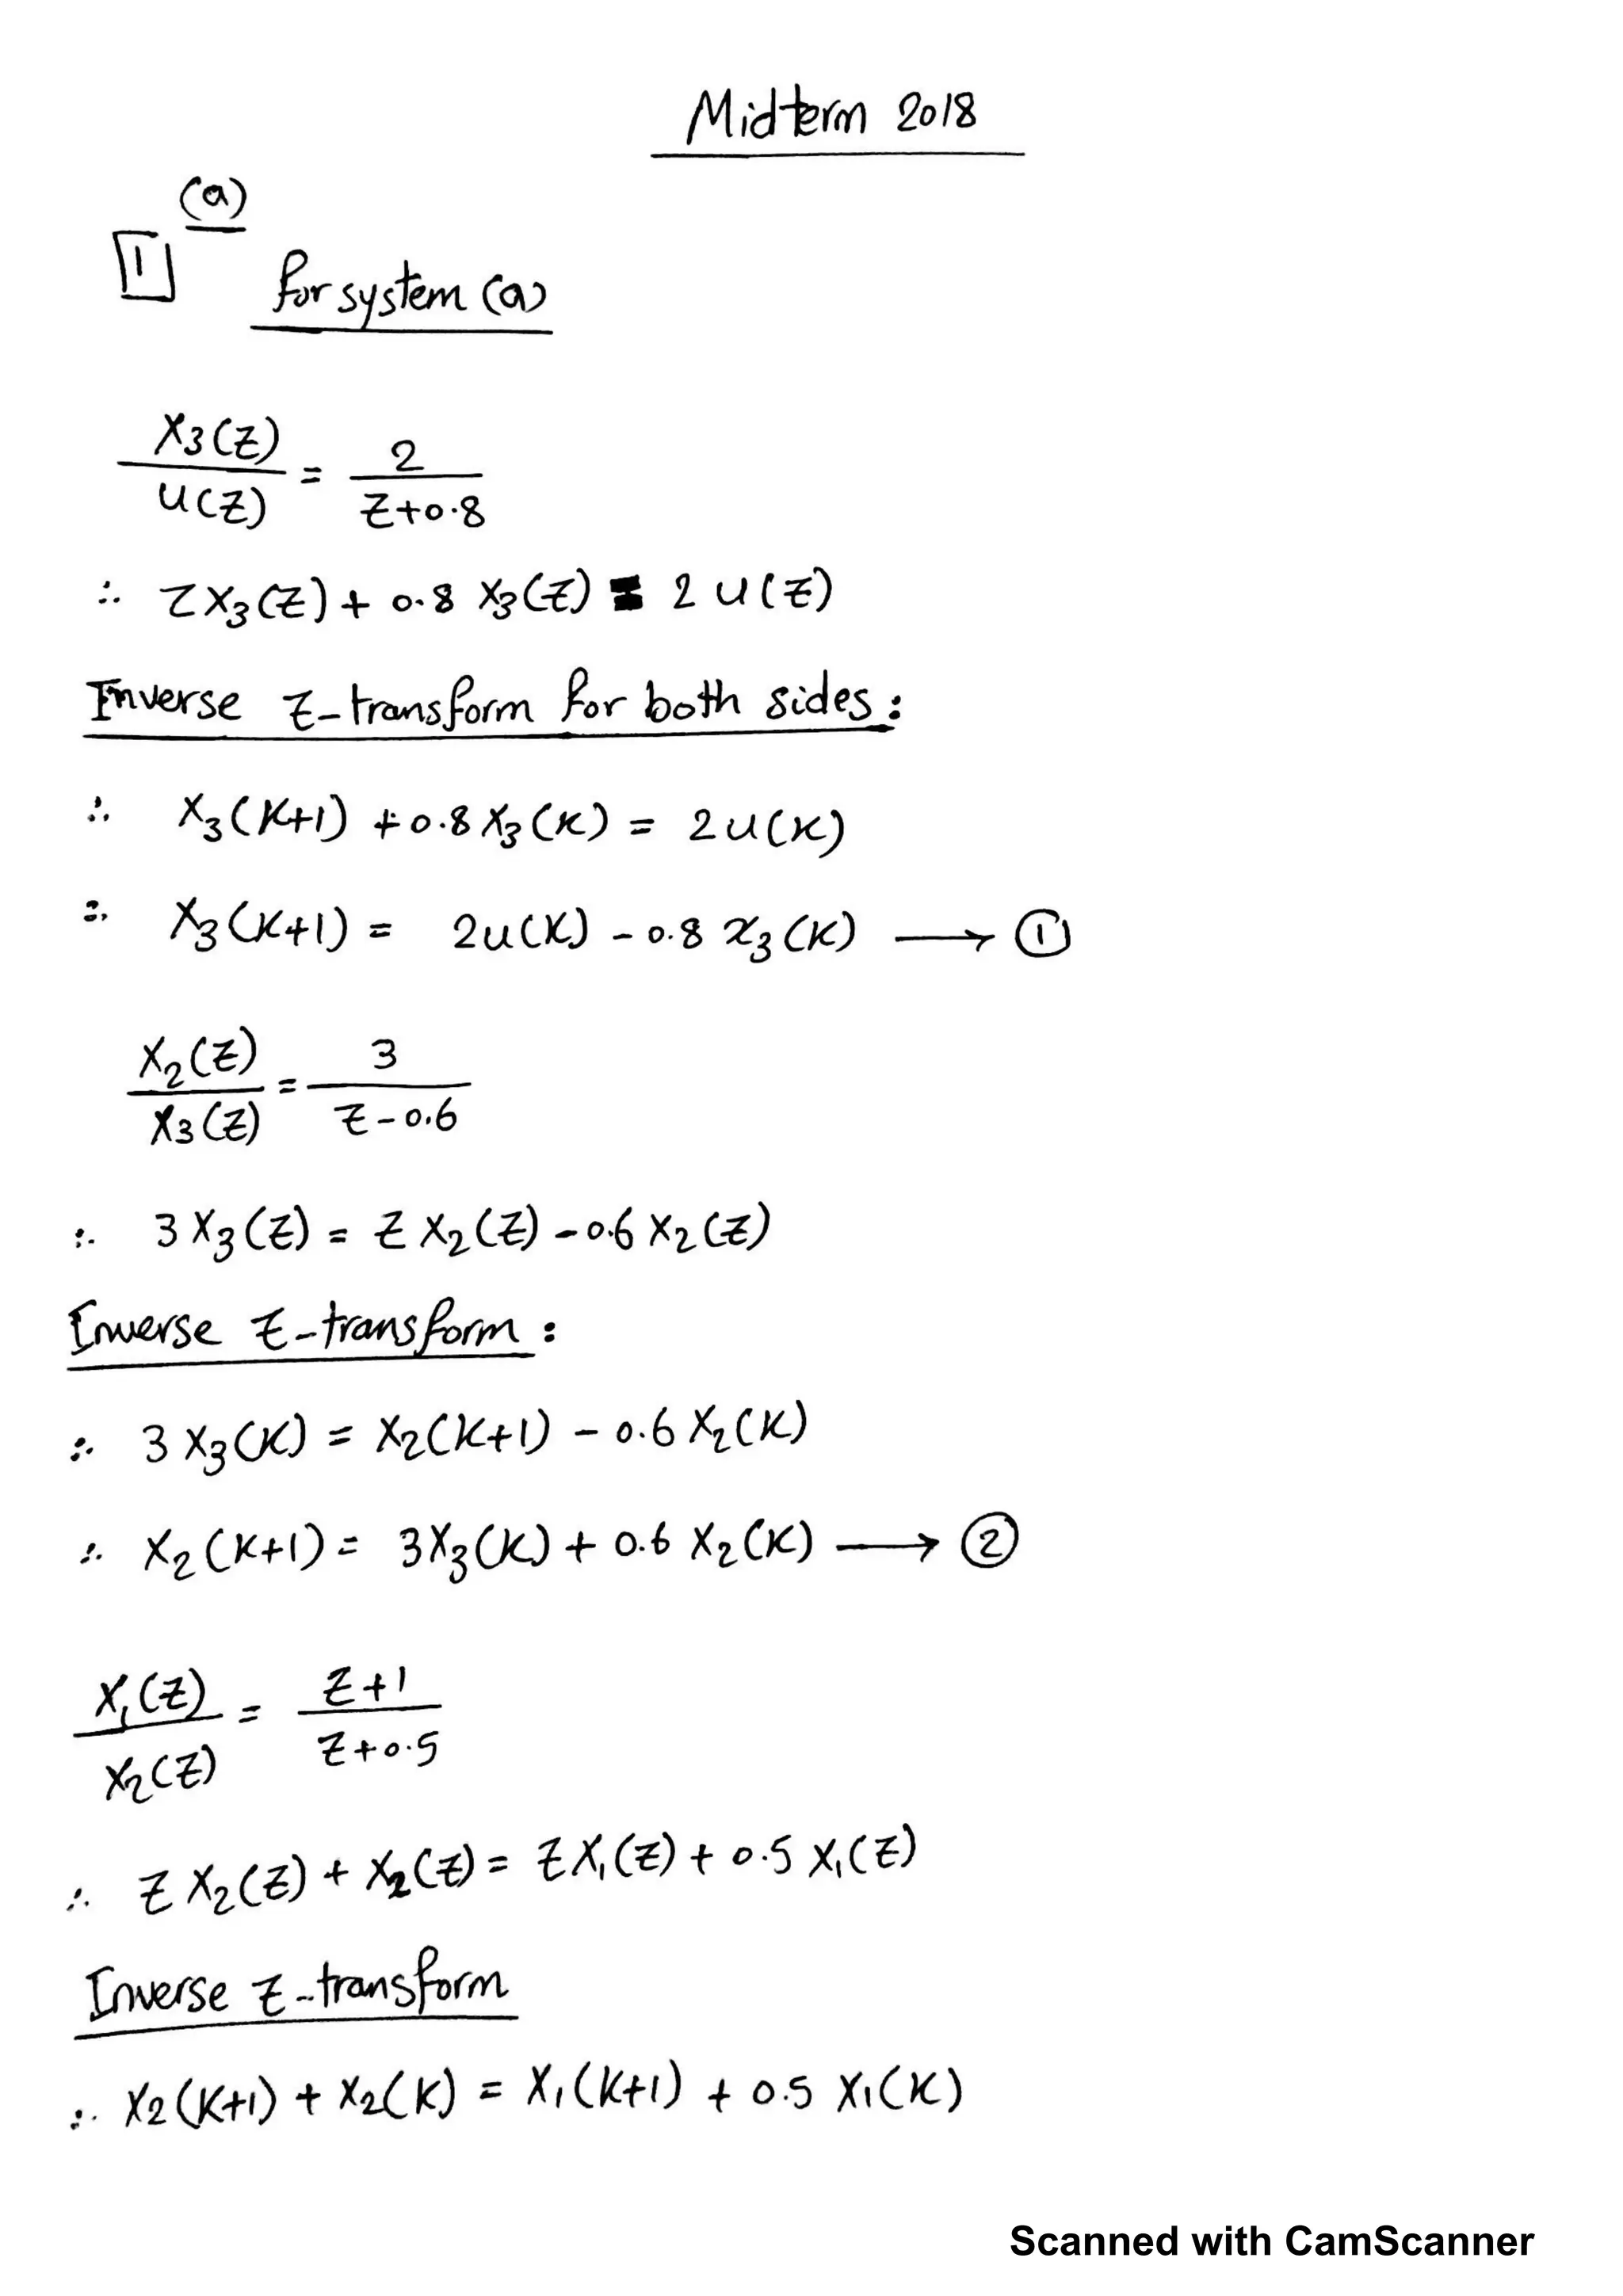 Midterm 2018
(a)
1
for system (a)
X3(Z)/U(Z) = 2/Z+0.8
∴ ZX3(Z) + 0.8 X3(Z) = 2 U(Z)
Inverse Z-transform for both sides:
∴ X3(K+1) + 0.8 X3(K) = 2U(K)
∴ X3(K+1) = 2U(K) - 0.8 x3(K) → ①
X2(Z)/X3(Z) = 3/Z-0.6
∴ 3 X3(Z) = Z X2(Z) - 0.6 X2(Z)
Inverse Z-transform:
∴ 3 X3(K) = X2(K+1) - 0.6 X2(K)
∴ X2(K+1) = 3X3(K) + 0.6 X2(K) → ②
X1(Z)/X2(Z) = Z+1/Z+0.5
∴ Z X2(Z) + X2(Z) = Z X1(Z) + 0.5 X1(Z)
Inverse Z-transform
∴ X2(K+1) + X2(K) = X1(K+1) + 0.5 X1(K)
Scanned with CamScanner